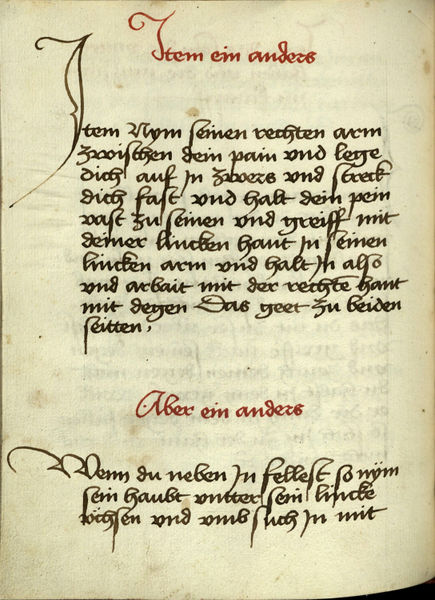 Item ein anders
Item Nym seinen rechten arm
zwischen dein pain vnd lege
dich auf In zwers vnd streck
dich fast vnd halt dein pein
vast zu seinen vnd greiff mit
deiner lincken hant In seinen
lincken arm vnd halt In also
vnd arbait mit der rechte hant
mit degen Das geet zu beiden
seitten,
Aber ein anders
Wenn du neben In fellest so nym
sein haubt vntter sein lincke
vchsen vnd vmb such In mit